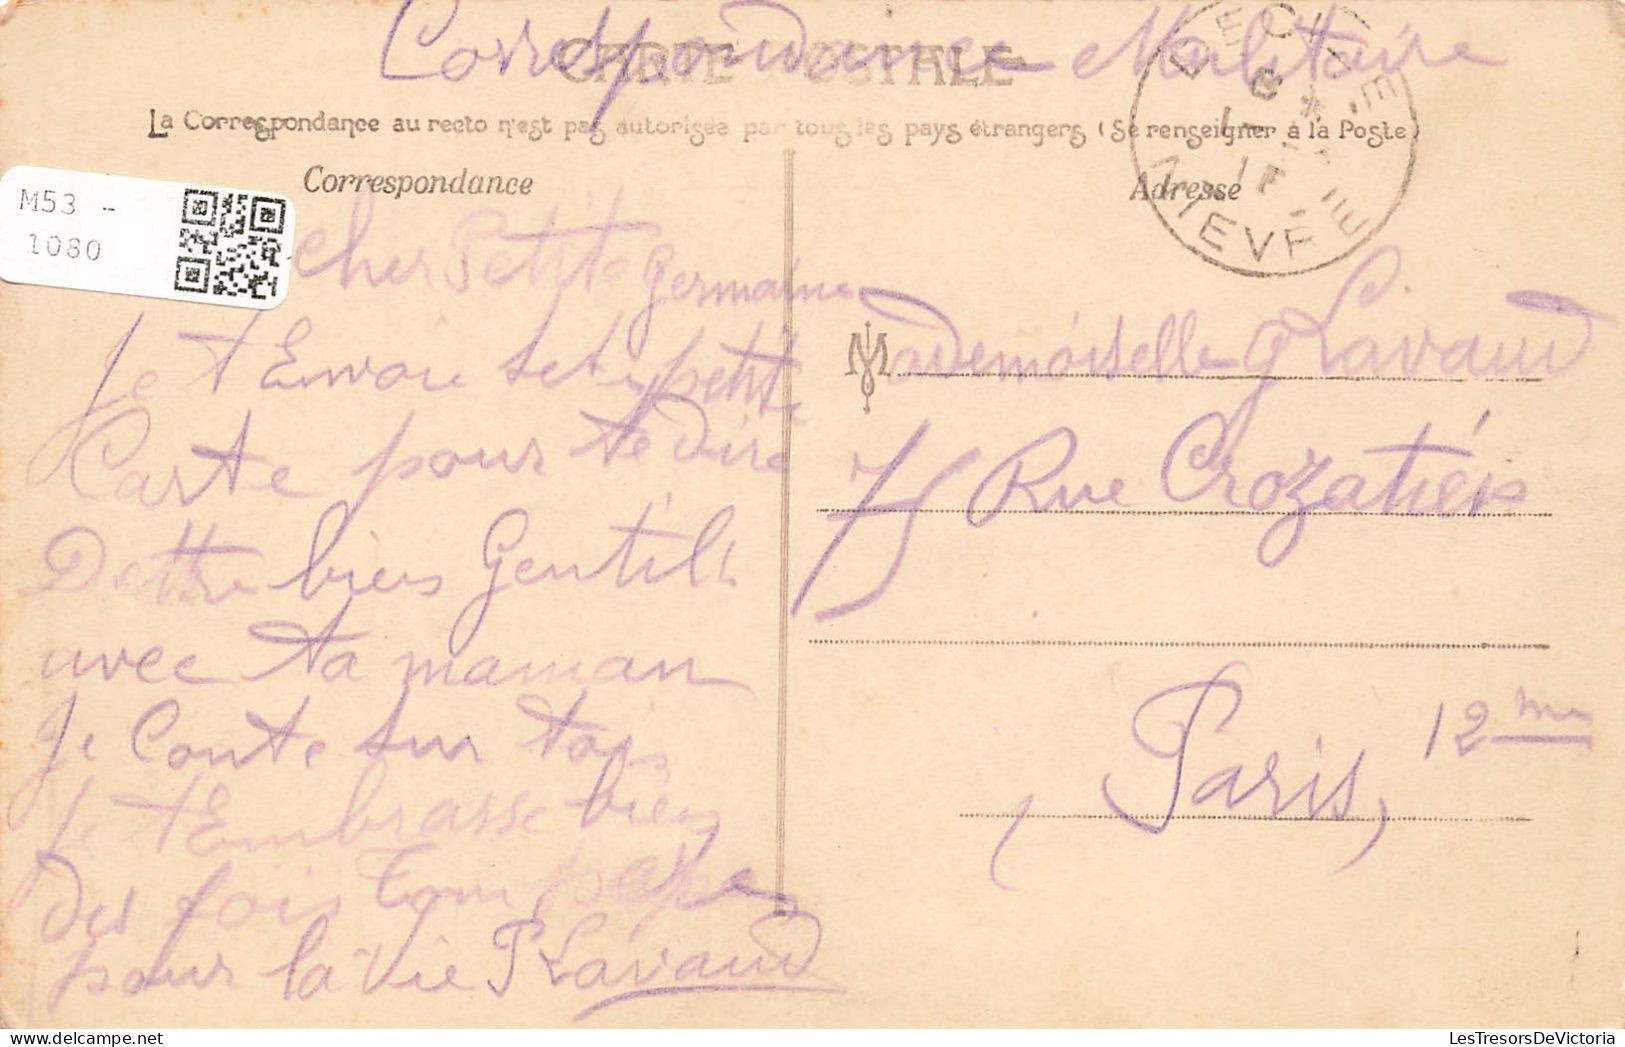 Correspondance Militaire
CARTE POSTALE
La Correspondance au recto n'est pas autorisée par tous les pays étrangers (Se renseigner à la Poste)
Correspondance
Adresse
DECIZE
NIEVRE
M53 -
1080
Cher Petite Germaine
Je t Envoie set petite
Carte pour te dire
Dettre bien Gentille
avec ta maman
Je Conte sur toi
Je t Embrasse bien
des fois Ton papa
pour la vie P Lavaud
Mademoiselle G Lavaud
75 Rue Crozatier
Paris, 12me
LesTresorsDeVictoria.com